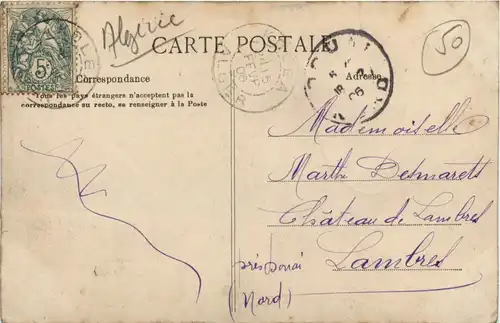 Algérie
50
CARTE POSTALE
Correspondance
Adresse
Tous les pays étrangers n'acceptent pas la
correspondance au recto, se renseigner à la Poste
5
Mademoiselle
Marthe Desmarets
Château de Lambres
Lambres
près Douai
(Nord)